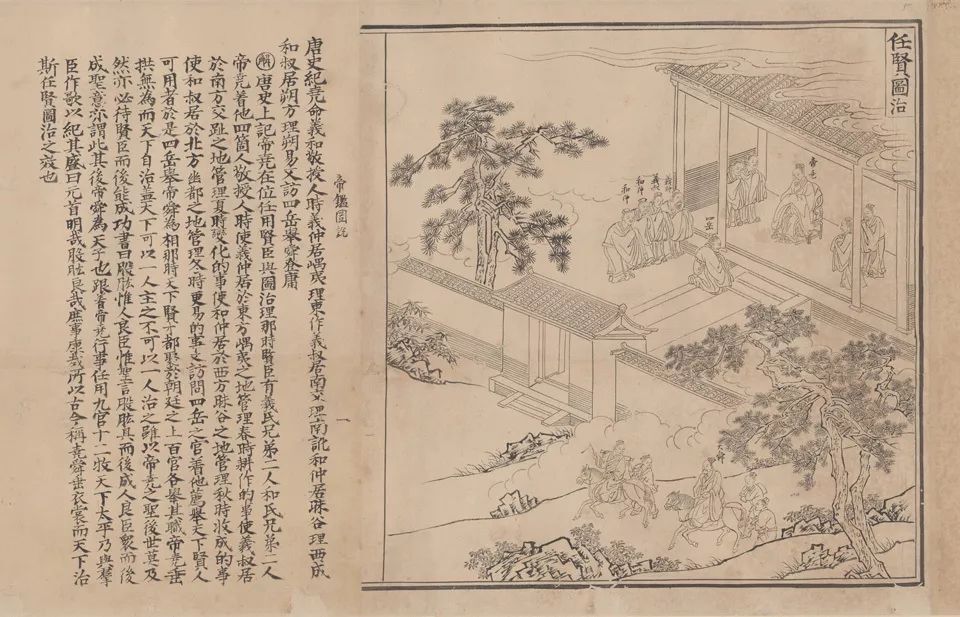 任賢圖治
帝堯
四岳
羲仲
羲叔
和仲
和叔
帝鑑圖說
一
唐史紀堯命羲和敬授人時羲仲居嵎夷理東作羲叔居南交理南訛和仲居昧谷理西成
和叔居朔方理朔易又訪四岳舉舜登庸
解唐史上記帝堯在位任用賢臣與圖治理那時賢臣有羲氏兄弟二人和氏兄弟二人
帝堯着他四箇人敬授人時使羲仲居於東方嵎夷之地管理春時耕作的事使羲叔居
於南方交趾之地管理夏時變化的事使和仲居於西方昧谷之地管理秋時收成的事
使和叔居於北方幽都之地管理冬時更易的事又訪問四岳之官着他薦舉天下賢人
可用者於是四岳舉帝舜為相那時天下賢才都聚於朝廷之上百官各舉其職帝堯垂
拱無為而天下自治蓋天下可以一人主之不可以一人治之雖以帝堯之聖後世莫及
然亦必待賢臣而後能成功書曰股肱惟人良臣惟聖言股肱具而後成人良臣衆而後
成聖意亦謂此其後帝舜為天子也跟着帝堯行事任用九官十二牧天下太平乃與羣
臣作歌以紀其盛曰元首明哉股肱良哉庶事康哉所以古今稱堯舜垂衣裳而天下治
斯任賢圖治之效也